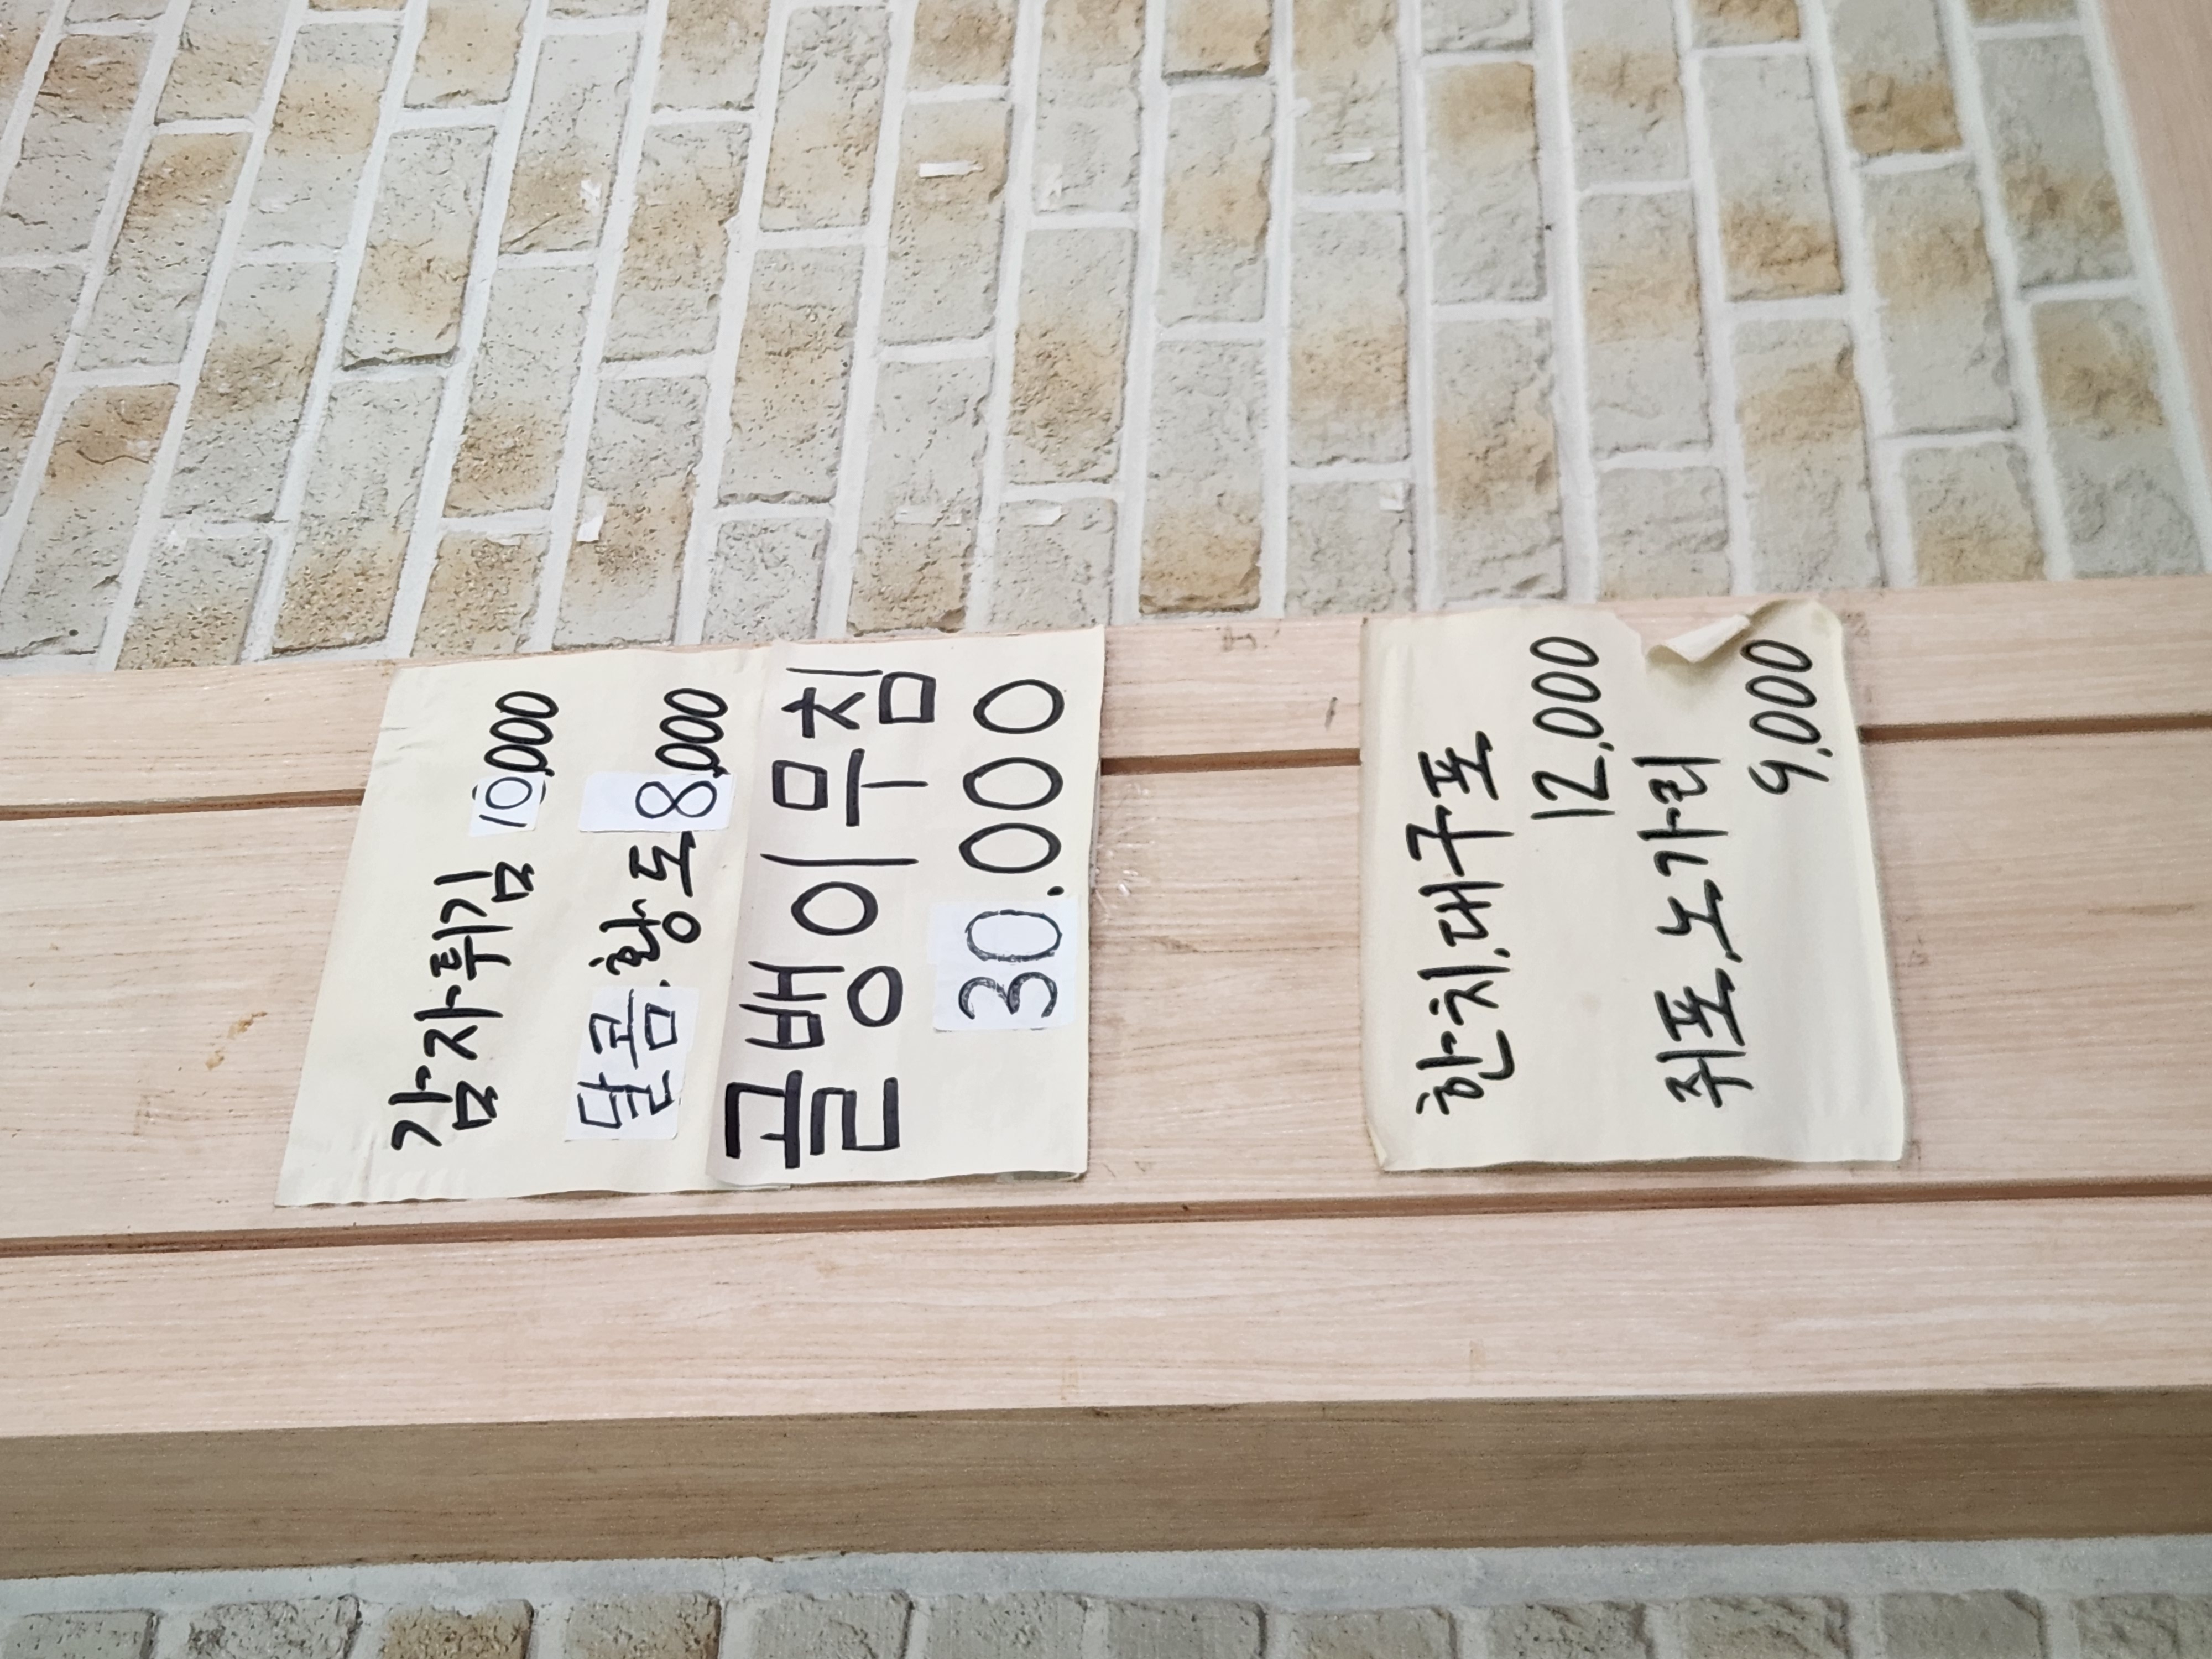 감자튀김 10,000
달콤.황도 8,000
골뱅이무침
30.000
한치.대구포
12,000
쥐포.노가리
9,000